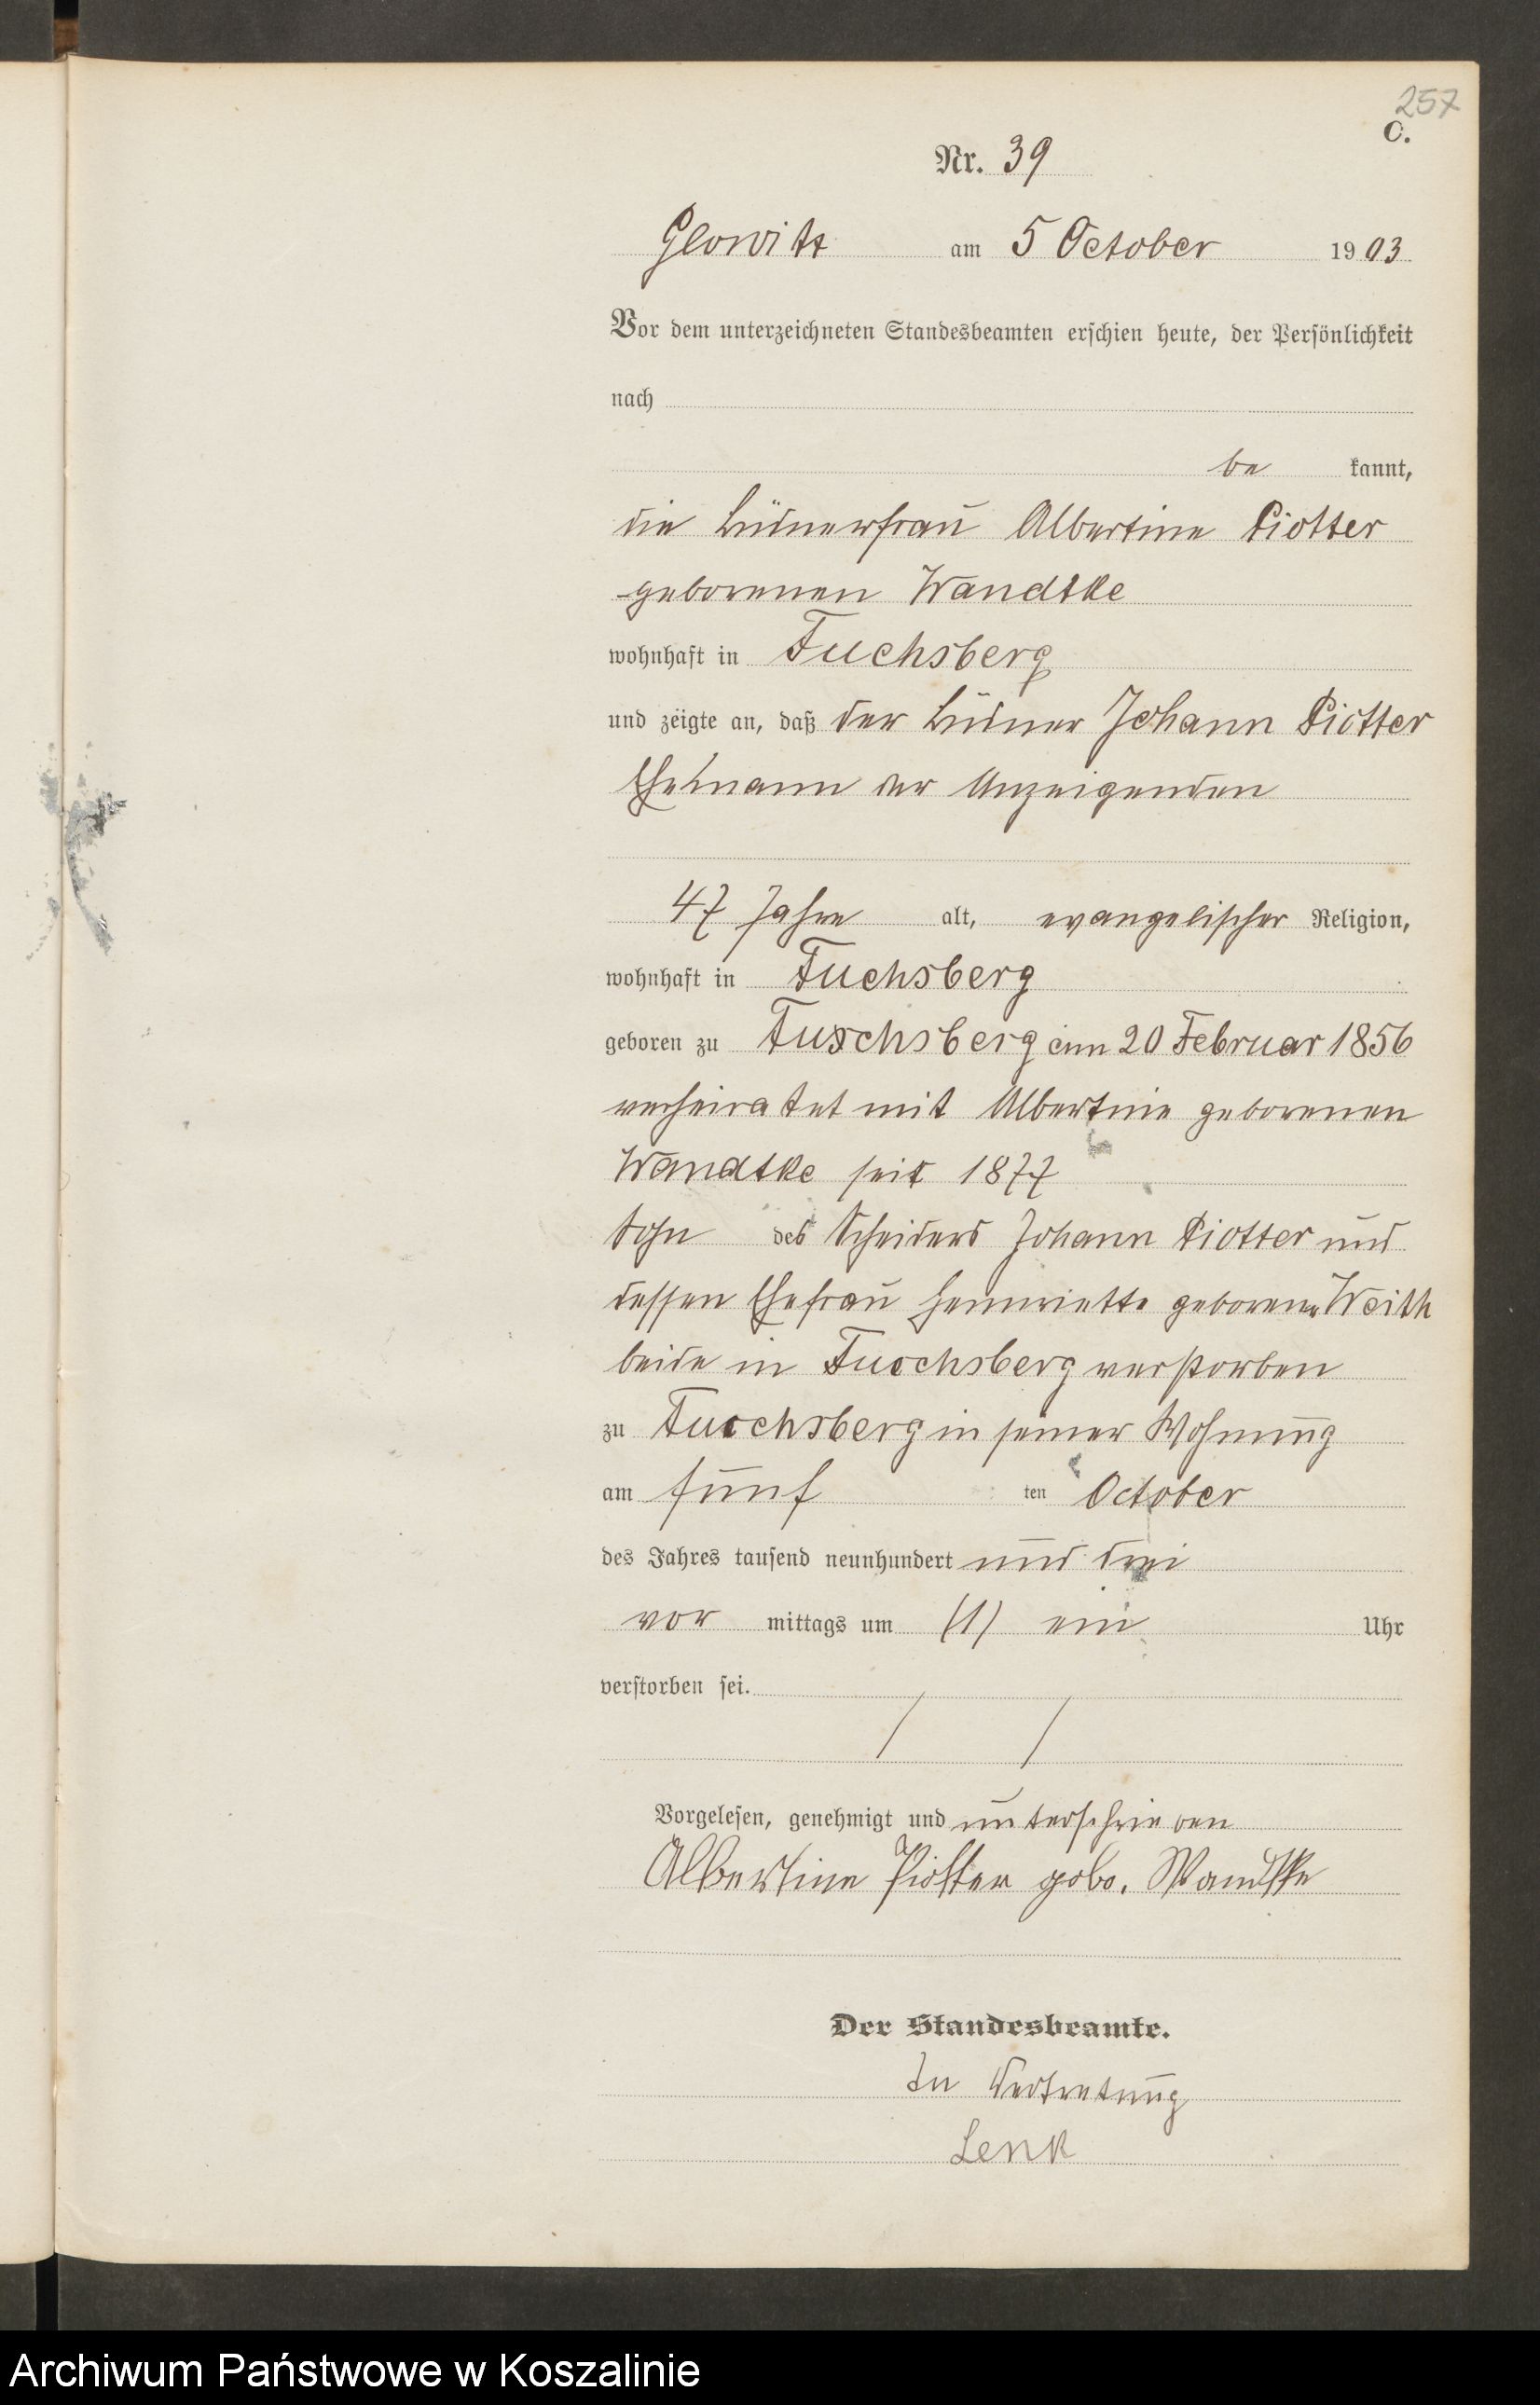 257
C.
Nr. 39
Glowitz am 5 October 1903
Vor dem unterzeichneten Standesbeamten erschien heute, der Persönlichkeit
nach
be kannt,
die Büdnerfrau Albertine Piotter
geborenen Wandtke
wohnhaft in Fuchsberg
und zeigte an, daß der Büdner Johann Piotter
Ehemann der Anzeigenden
47 Jahre alt, evangelischer Religion,
wohnhaft in Fuchsberg
geboren zu Fuschsberg am 20 Februar 1856
verheiratet mit Albertine geborenen
Wandtke seit 1877
Sohn des Johann Piotter und
dessen Ehefrau Hennriette geborene Weith
beide in Fucchsberg verstorben
zu Fucchsberg in seiner Wohnung
am fünf ten October
des Jahres tausend neunhundert und drei
vor mittags um (1) ein Uhr
verstorben sei.
Vorgelesen, genehmigt und unterschrieben
Albertine Piotter gebo. Wandtke
Der Standesbeamte.
In Vertretung
Lenk
Archiwum Państwowe w Koszalinie